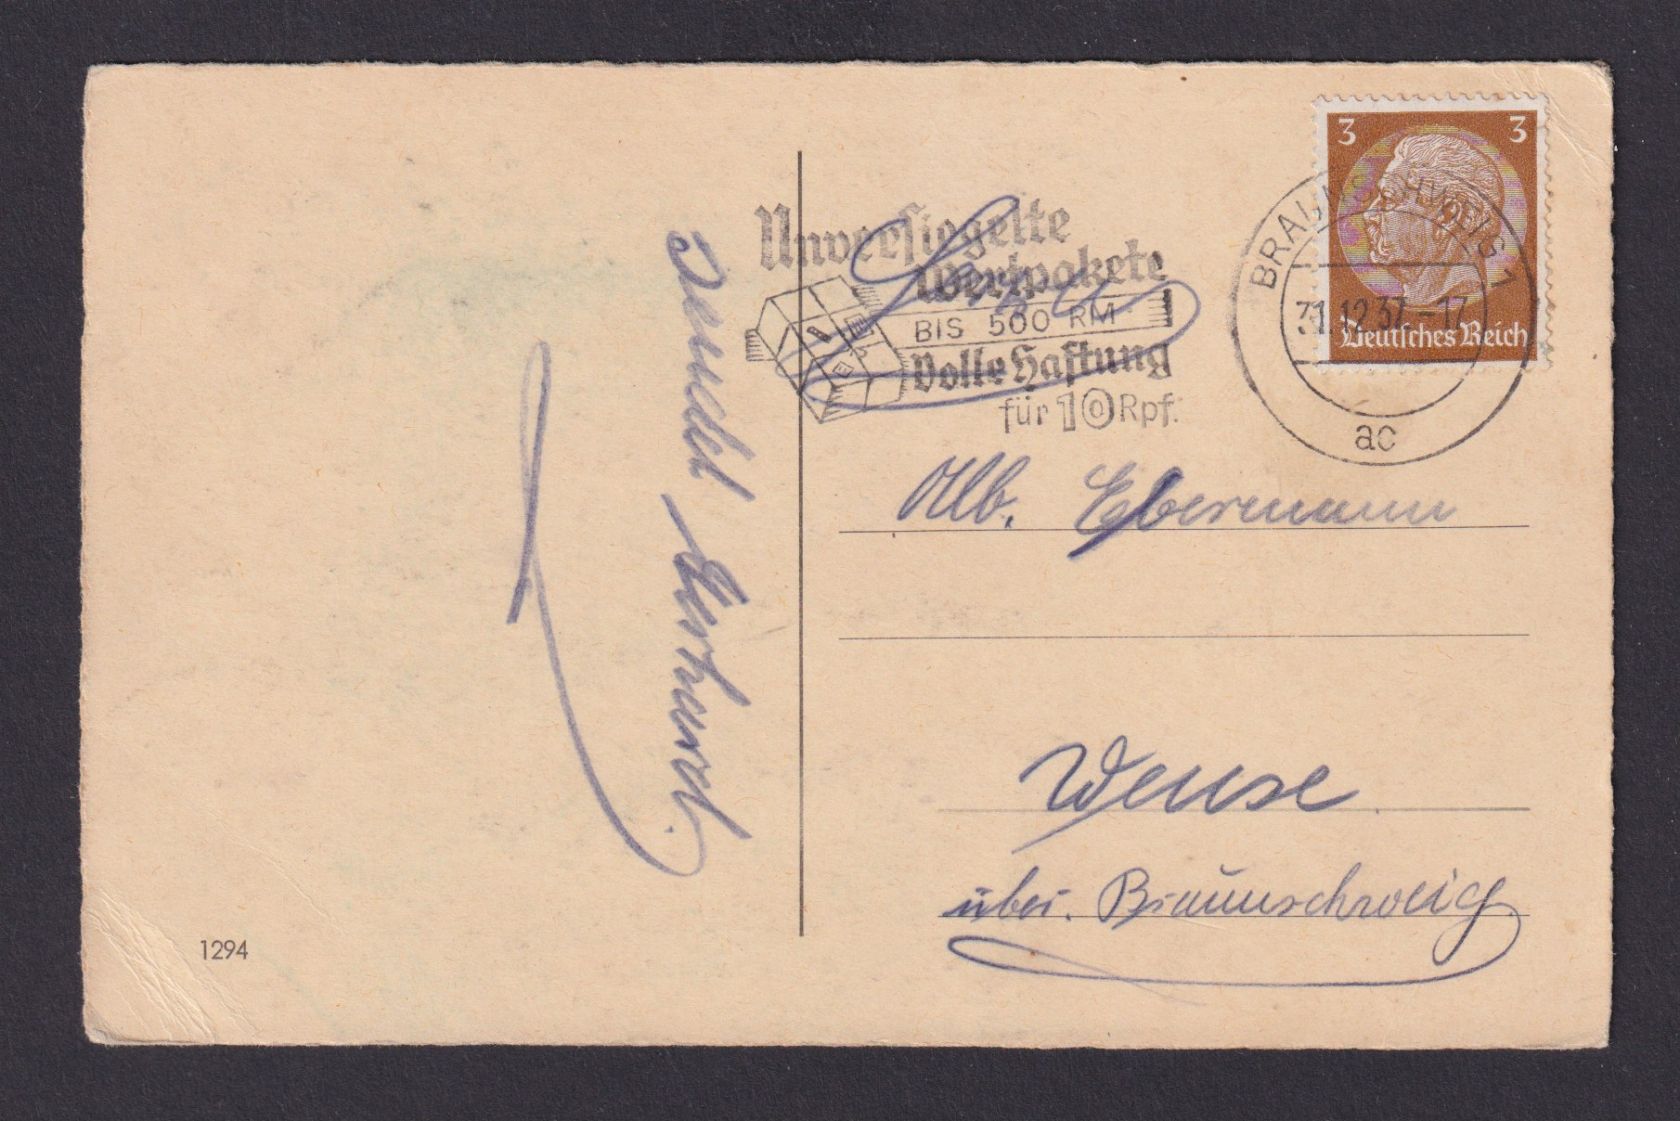 3 3
Deutsches Reich
BRAUNSCHWEIG 1
31.12.37-17
ac
Unversiegelte
Wertpakete
BIS 500 RM
Volle Haftung
für 10 Rpf.
Alb. Ebermann
Wense
über. Braunschweig
1294